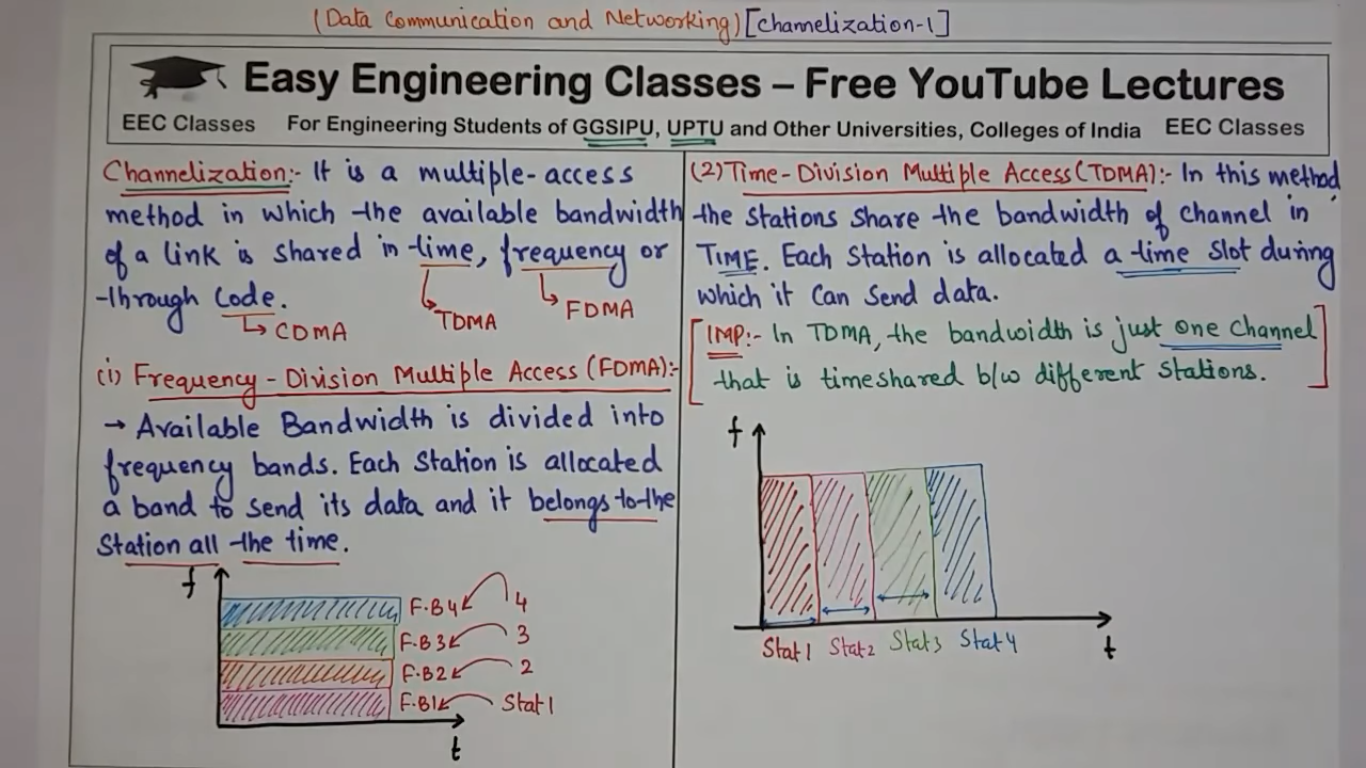 (Data Communication and Networking) [Channelization-1]
Easy Engineering Classes – Free YouTube Lectures
EEC Classes For Engineering Students of GGSIPU, UPTU and Other Universities, Colleges of India EEC Classes
Channelization:- It is a multiple-access
method in which the available bandwidth
of a link is shared in time, frequency or
through Code.
TDMA
FDMA
CDMA
(1) Frequency-Division Multiple Access (FDMA):-
→ Available Bandwidth is divided into
frequency bands. Each Station is allocated
a band to send its data and it belongs to the
Station all the time.
f
F.B4 4
F.B3 3
F.B2 2
F.B1 Stat1
t
(2) Time-Division Multiple Access (TDMA):- In this method
the Stations share the bandwidth of channel in
TIME. Each Station is allocated a time slot during
which it can send data.
[IMP:- In TDMA, the bandwidth is just one channel
that is timeshared b/w different Stations.]
f
Stat1 Stat2 Stat3 Stat4
t